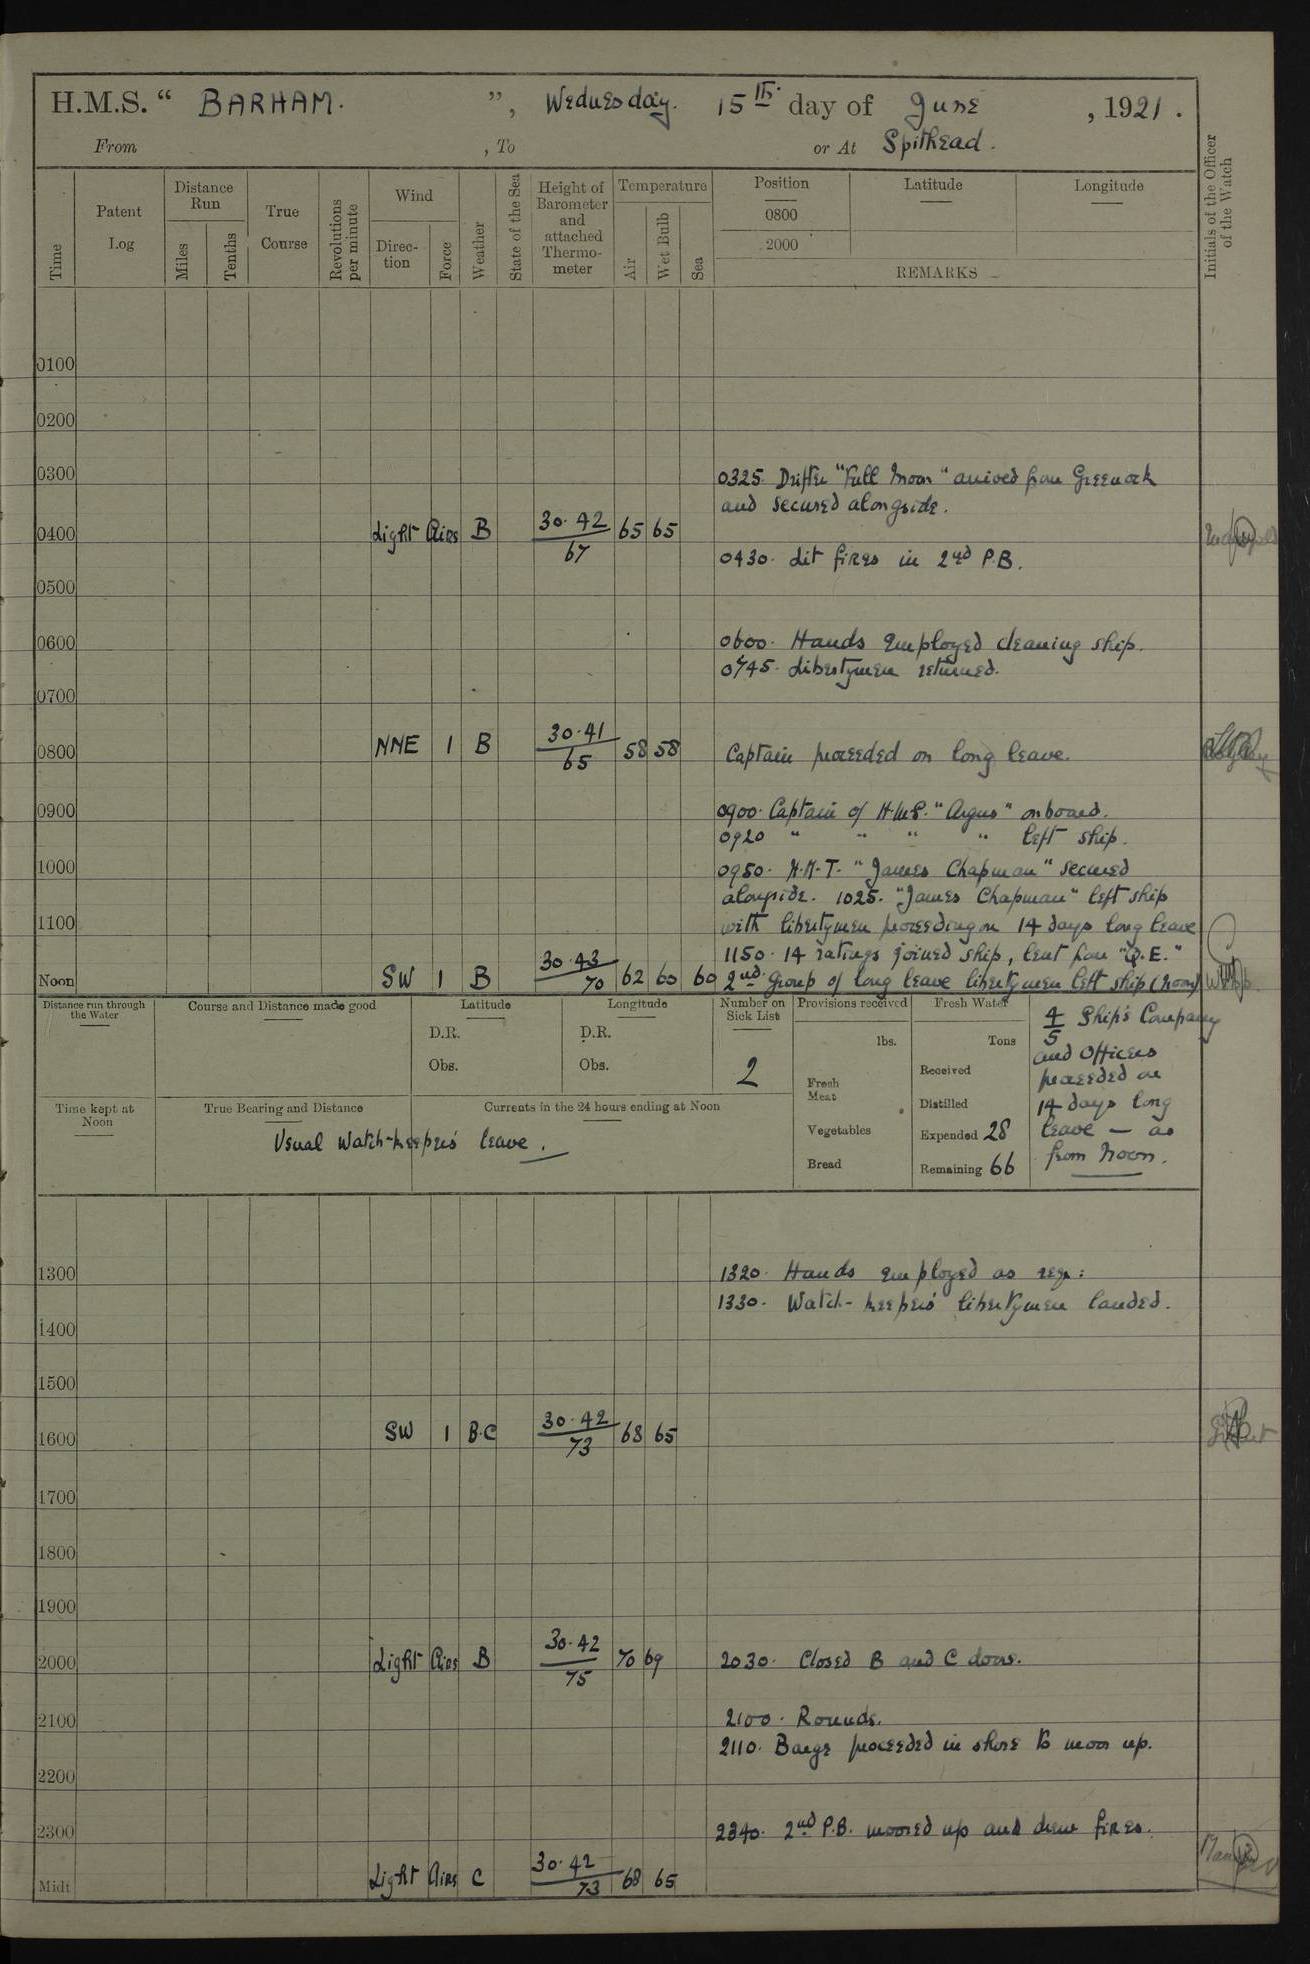 H.M.S. “ BARHAM. ”, Wednesday. 15th. day of June , 1921 .
From , To or At Spithead .
Time
Patent Log
Distance Run
Miles
Tenths
True Course
Revolutions per minute
Wind
Direc- tion
Force
Weather
State of the Sea
Height of Barometer and attached Thermo- meter
Temperature
Air
Wet Bulb
Sea
Position Latitude Longitude
0800
2000
REMARKS
Initials of the Officer of the Watch
0100
0200
0300
0325. Drifter "Full Moon" arrived from Greenock
and secured alongside.
0400 Light Airs B 30.42 67 65 65
0430. Lit fires in 2nd P.B.
0500
0600
0600. Hands Employed cleaning ship.
0745. Libertymen returned.
0700
0800 NNE 1 B 30.41 65 58 58 Captain proceeded on long leave.
0900
0900. Captain of H.M.S. "Argus" onboard.
0920 " " " " left ship.
1000
0950. H.M.T. "James Chapman" secured
alongside. 1025. "James Chapman" left ship
1100
with libertymen proceeding on 14 days long leave
1150. 14 ratings joined ship, lent from "Q.E."
Noon SW 1 B 30.43 70 62 60 60 2nd. Group of long leave libertymen left ship (noon)
Distance run through the Water
Course and Distance made good
Latitude
D.R.
Obs.
Longitude
D.R.
Obs.
Number on Sick List
2
Provisions received
lbs.
Fresh Meat
Vegetables
Bread
Fresh Water
Tons
Received
Distilled
Expended 28
Remaining 66
4/5 Ship's Company
and Officers
proceeded on
14 days long
leave — as
from Noon.
Time kept at Noon
True Bearing and Distance
Currents in the 24 hours ending at Noon
Usual Watch-keepers' leave.
1300
1320. Hands employed as req:
1330. Watch-keepers' libertymen landed.
1400
1500
1600 SW 1 B.C 30.42 73 68 65
1700
1800
1900
2000 Light Airs B 30.42 75 70 69 2030. Closed B and C doors.
2100
2100. Rounds.
2110. Barge proceeded in shore to moor up.
2200
2300
2340. 2nd P.B. moored up and drew fires.
Midt Light Airs C 30.42 73 68 65